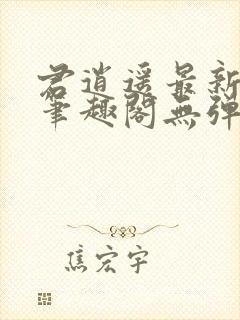 君逍遥最新
笔趣阁无弹
焦宏宇